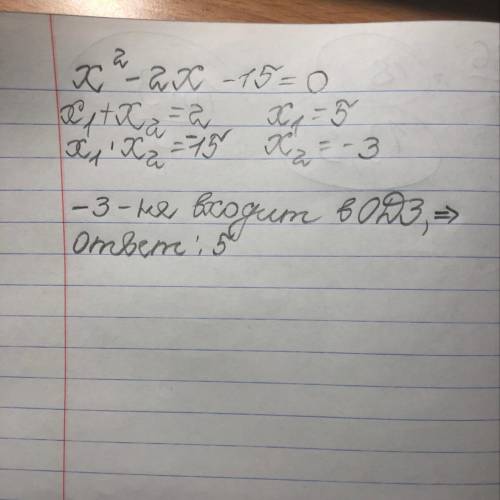 x² - 2x - 15 = 0
x₁ + x₂ = 2 x₁ = 5
x₁ · x₂ = -15 x₂ = -3
-3 - не входит в ОДЗ, ⇒
Ответ: 5